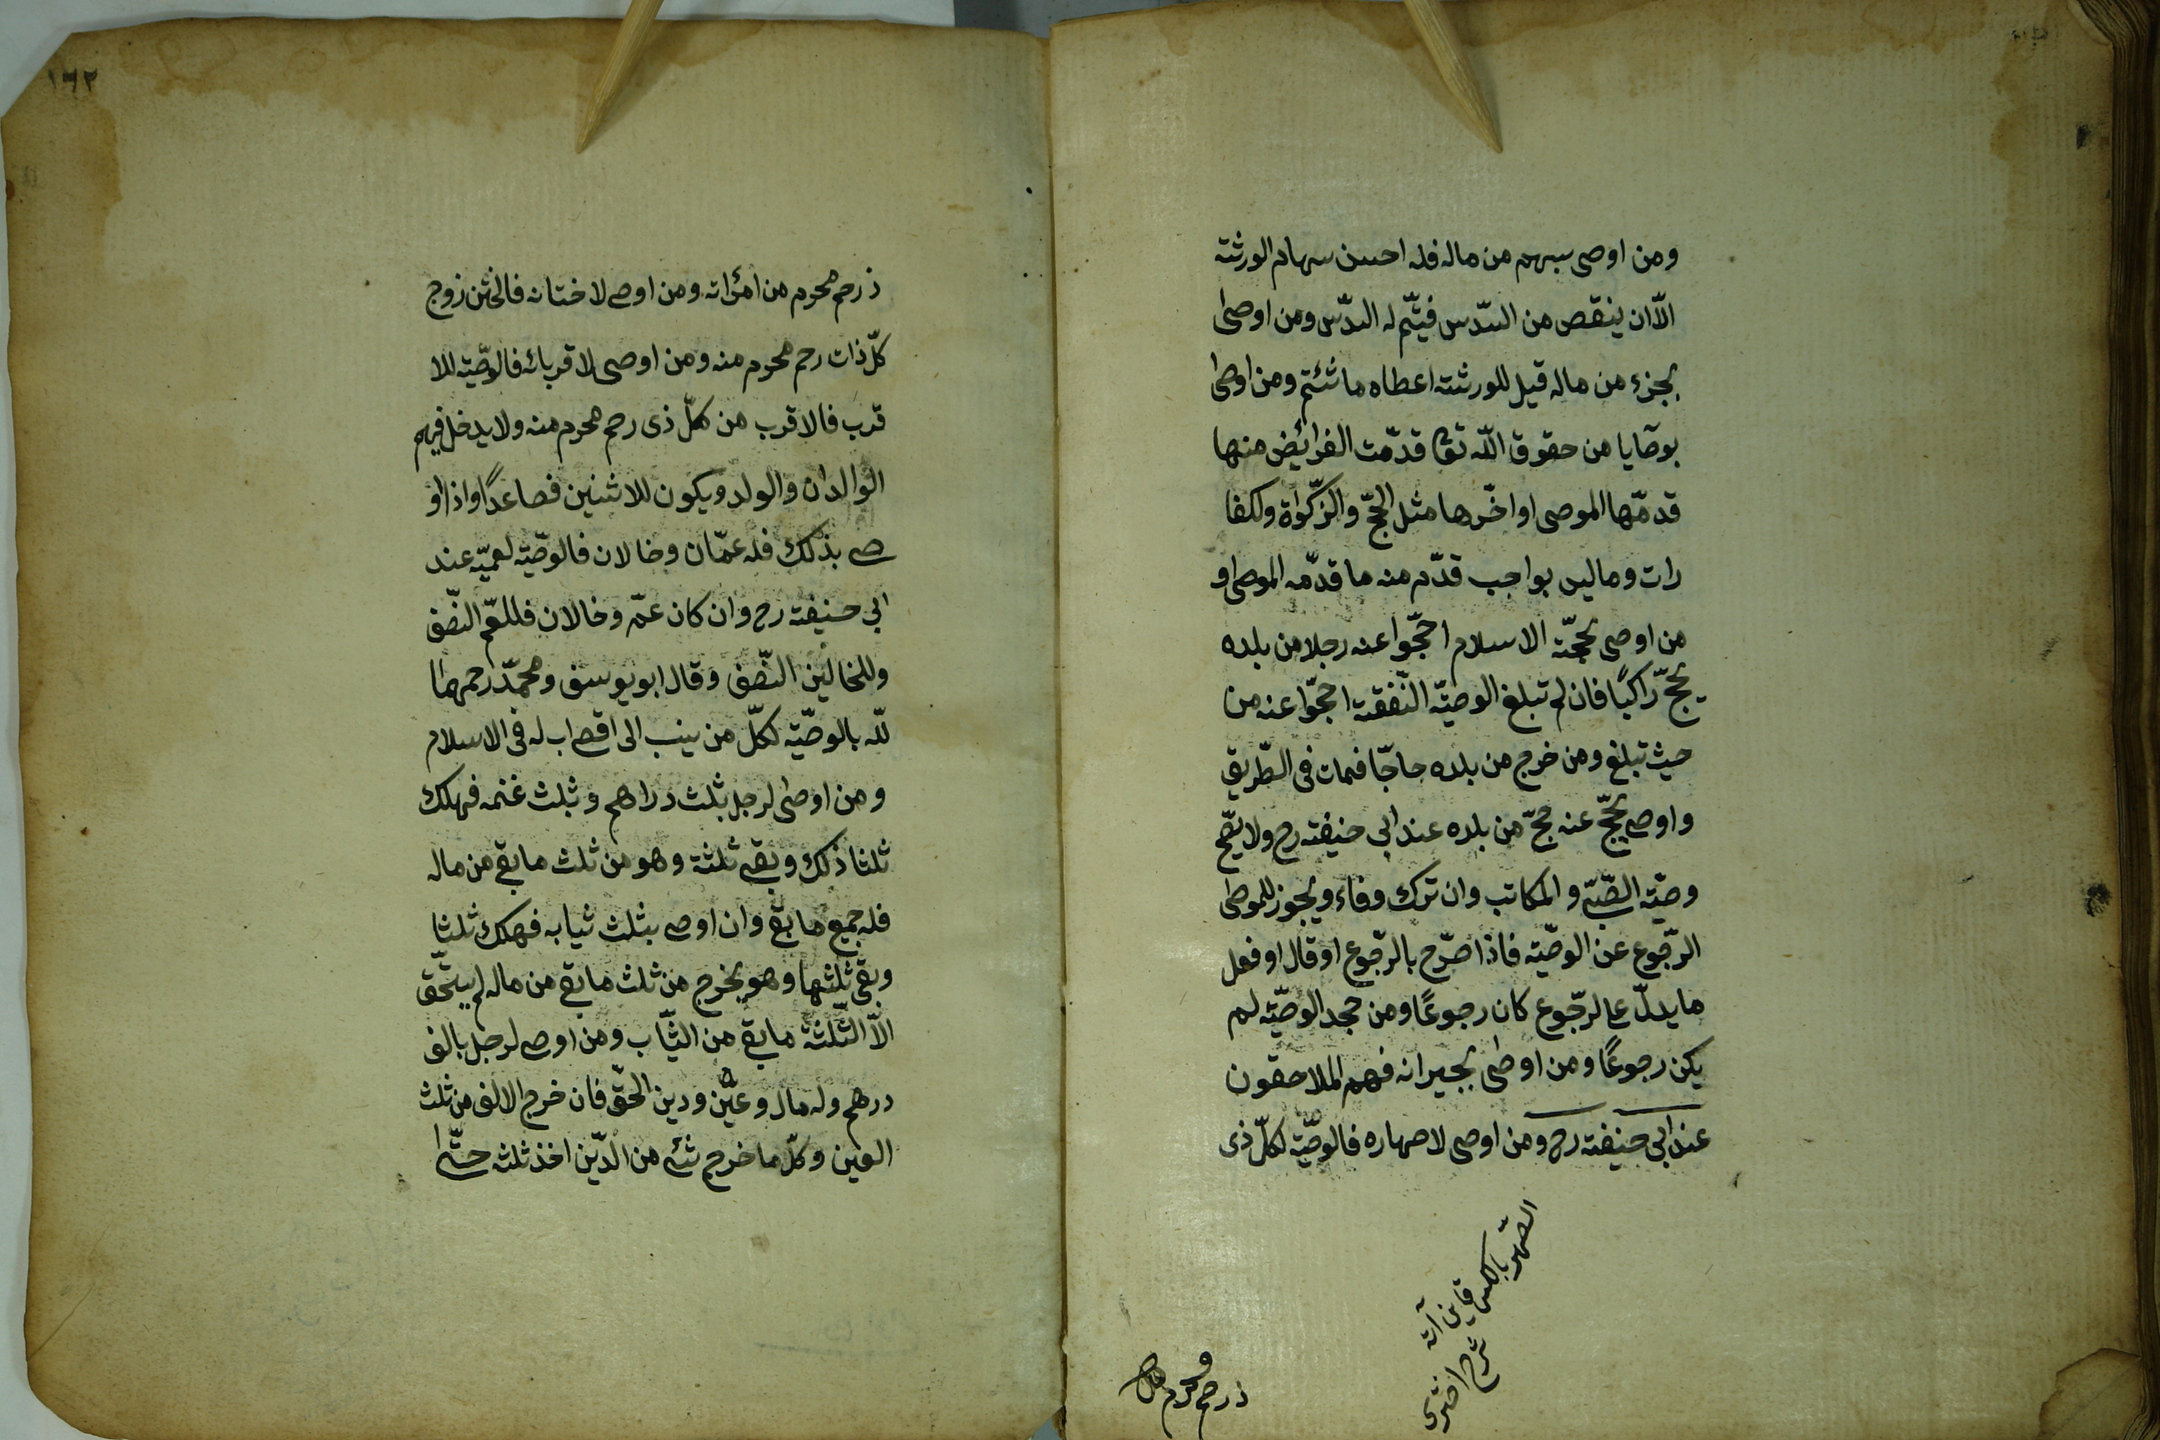 ومن اوصى بسهم من ماله فله احسن سهام الورثته
الّا ان ينقص من السّدس فيتّم له السّدس ومن اوصى
بجزء من ماله قيل للورثته اعطاه ما شئتم ومن اوصى
بوصايا من حقوق اللّه تعا قدّمت الفرائض منها
قدمّها الموصى او اخّرها مثل الحجّ والزّكواة ولكفا
رات وما ليس بواجب قدّم منه ما قدّمه الموصى و
من اوصى بحجّته الاسلام احجّوا عنه رجلا من بلده
يحجّ راكبًا فان لم تبلغ الوصيّة النّفقته احجّوا عنه من
حيث تبلغ ومن خرج من بلده حاجّا فمات فى الطّريق
واوصى يحجّ عنه حجّ من بلده عند ابى حنيفته رح ولا يصّح
وصيّة الصّبىّ والمكاتب وان ترك وفاء ويجوز للموصى
الرّجوع عن الوصيّة فاذا صرّح بالرّجوع او قال او فعل
ما يدلّ على الرّجوع كان رجوعًا ومن جحد الوصيّة لم
يكن رجوعًا ومن اوصى بجيرانه فهم الملاصقون
عند ابى حنيفته رح ومن اوصى لاصهاره فالوصيّة لكلّ ذى
الصّهر بالكسر
شرح اختری
ذ رحم محرم
١٦٢
ذ رحم محرم من امرأته ومن اوصى لاختانه فالختن زوج
كلّ ذات رحم محرم منه ومن اوصى لاقربائه فالوصّية للا
قرب فالاقرب من كلّ ذى رحم محرم منه ولا يدخل فيهم
الوالدان والولد ويكون للاثنين فصاعدًا واذا او
صى بذلك فله عمّان وخالان فالوصّية لعميّه عند
ابى حنيفته رح وان كان عمّ وخالان فللعّم النّصف
وللخالين النّصف وقال ابو يوسف ومحمّد رحمهما ا
للّه بالوصّية لكلّ من ينسب الى اقصى اب له فى الاسلام
ومن اوصى لرجل بثلث دراهم وثبلث غنمه فهلك
ثلثا ذلك وبقى ثلثة وهو من ثلث ما بقى من ماله
فله جميع ما بقى وان اوصى بثلث ثيابه فهلك ثلثا
وبقى ثلثها وهو يخرج من ثلث ما بقى من ماله لم يستّحق
الّا الثّلثة ما بقى من الثيّاب ومن اوصى لرجل بالف
درهم وله مال وعيّن ودين الحقّ فان خرج الالف من ثلث
العين وكلّما خرج شئ من الدّين اخذ ثلثه حتّى